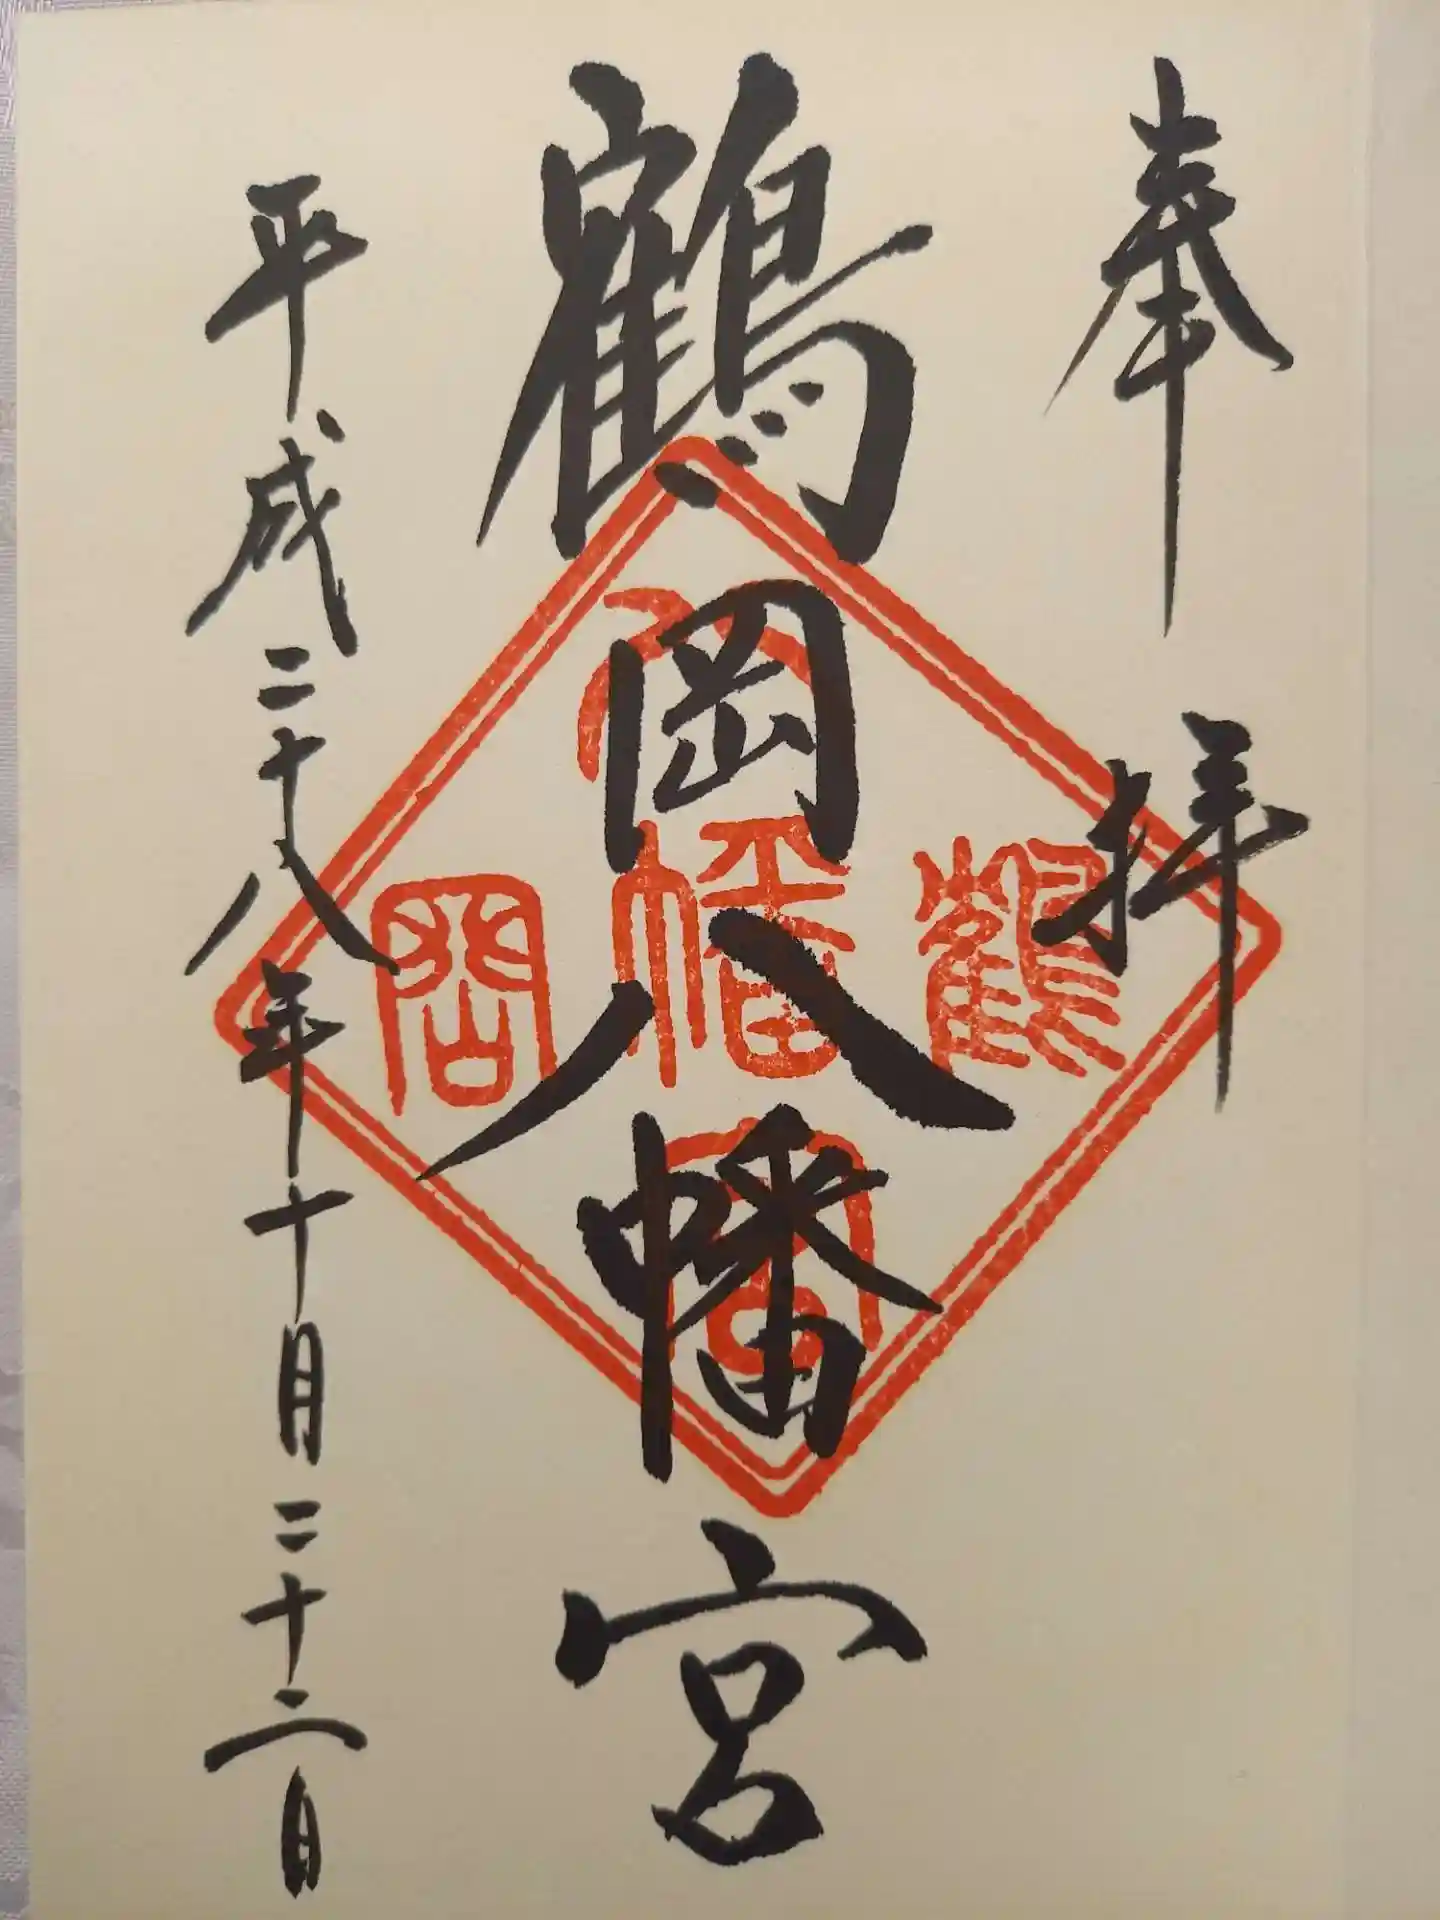 奉拝
鶴岡八幡宮
平成二十八年十月二十二日
鶴岡
八幡宮